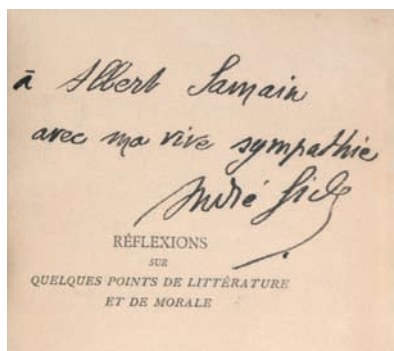 à Albert Samain
avec ma vive sympathie
André Gide
RÉFLEXIONS
SUR
QUELQUES POINTS DE LITTÉRATURE
ET DE MORALE